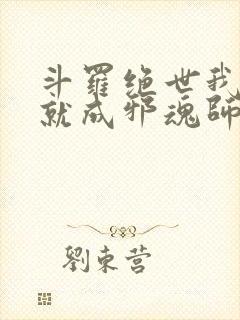 斗羅绝世我
就成邪魂師
劉東营